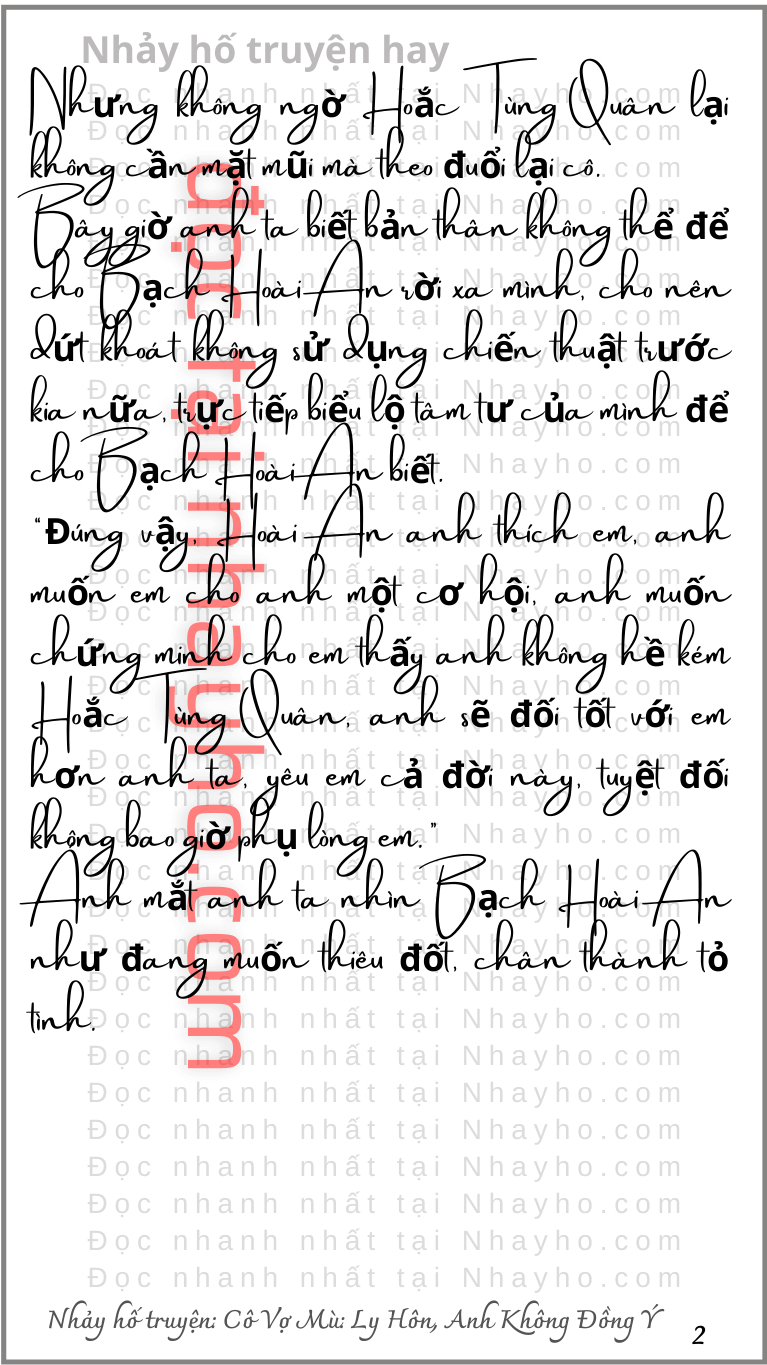 Nhảy hố truyện hay
Nhưng không ngờ Hoắc Tùng Quân lại
không cần mặt mũi mà theo đuổi lại cô.
Bây giờ anh ta biết bản thân không thể để
cho Bạch Hoài An rời xa mình, cho nên
dứt khoát không sử dụng chiến thuật trước
kia nữa, trực tiếp biểu lộ tâm tư của mình để
cho Bạch Hoài An biết.
“Đúng vậy, Hoài An anh thích em, anh
muốn em cho anh một cơ hội, anh muốn
chứng minh cho em thấy anh không hề kém
Hoắc Tùng Quân, anh sẽ đối tốt với em
hơn anh ta, yêu em cả đời này, tuyệt đối
không bao giờ phụ lòng em.”
Ánh mắt anh ta nhìn Bạch Hoài An
như đang muốn thiêu đốt, chân thành tỏ
tình.
đọc tại nhayho.com
Đọc nhanh nhất tại Nhayho.com
Đọc nhanh nhất tại Nhayho.com
Đọc nhanh nhất tại Nhayho.com
Đọc nhanh nhất tại Nhayho.com
Đọc nhanh nhất tại Nhayho.com
Đọc nhanh nhất tại Nhayho.com
Đọc nhanh nhất tại Nhayho.com
Nhảy hố truyện: Cô Vợ Mù: Ly Hôn, Anh Không Đồng Ý
2